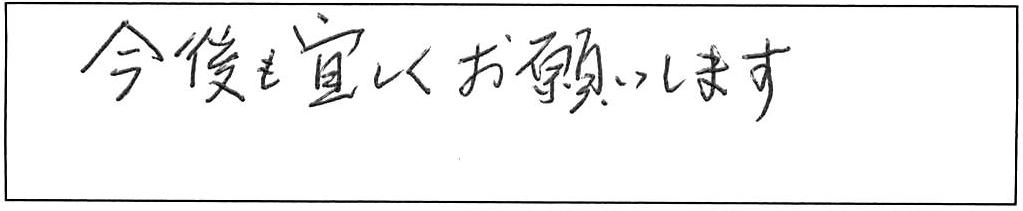 今後も宜しくお願いします